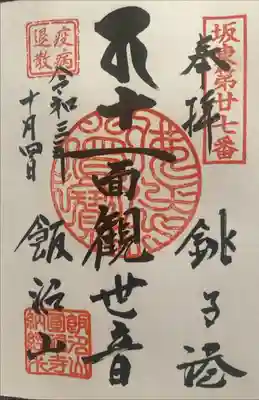 坂東第廿七番
奉拝
銚子港
十一面観世音
疫病
退散
令和三年
十月四日
飯沼山
飯沼山
圓福寺
納経印